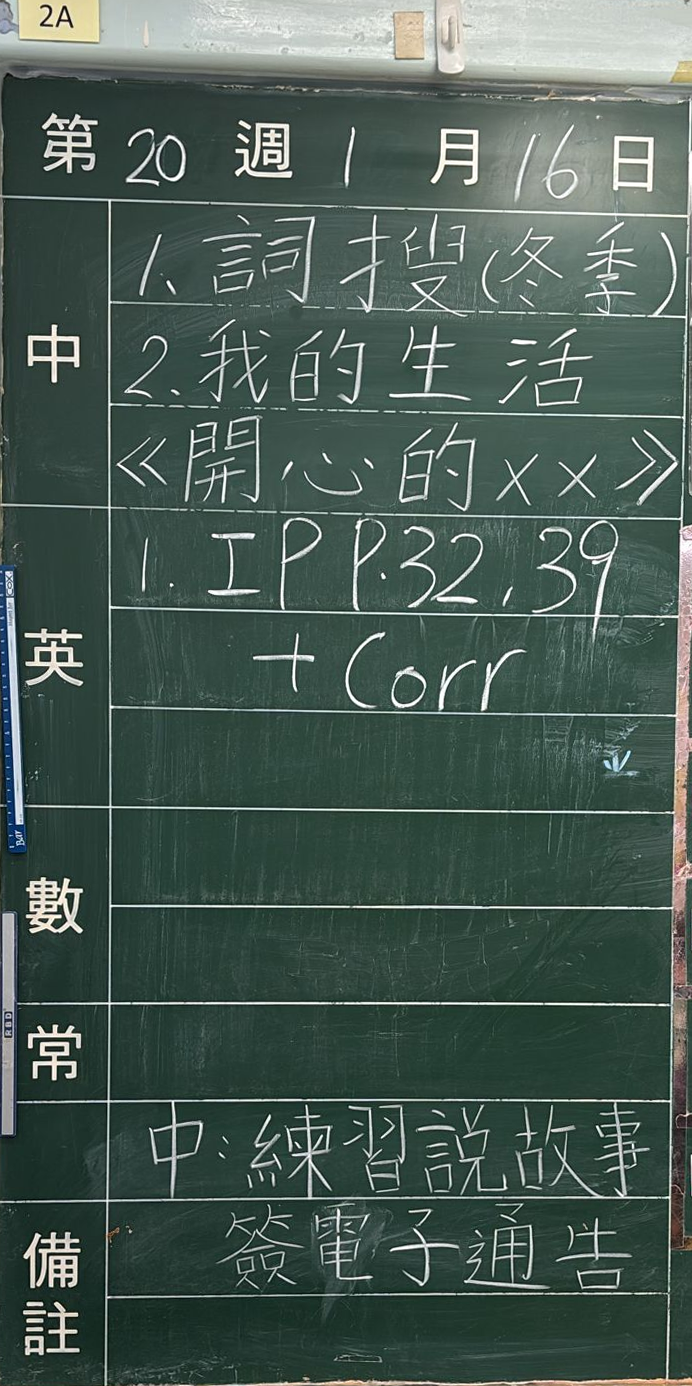 2A
第 20 週 1 月 16 日
中
1. 詞搜(冬季)
2. 我的生活
《開心的xx》
英
1. IP P.32, 39
+ Corr
數
常
中:練習説故事
簽電子通告
備註
COX
Bar
RBD